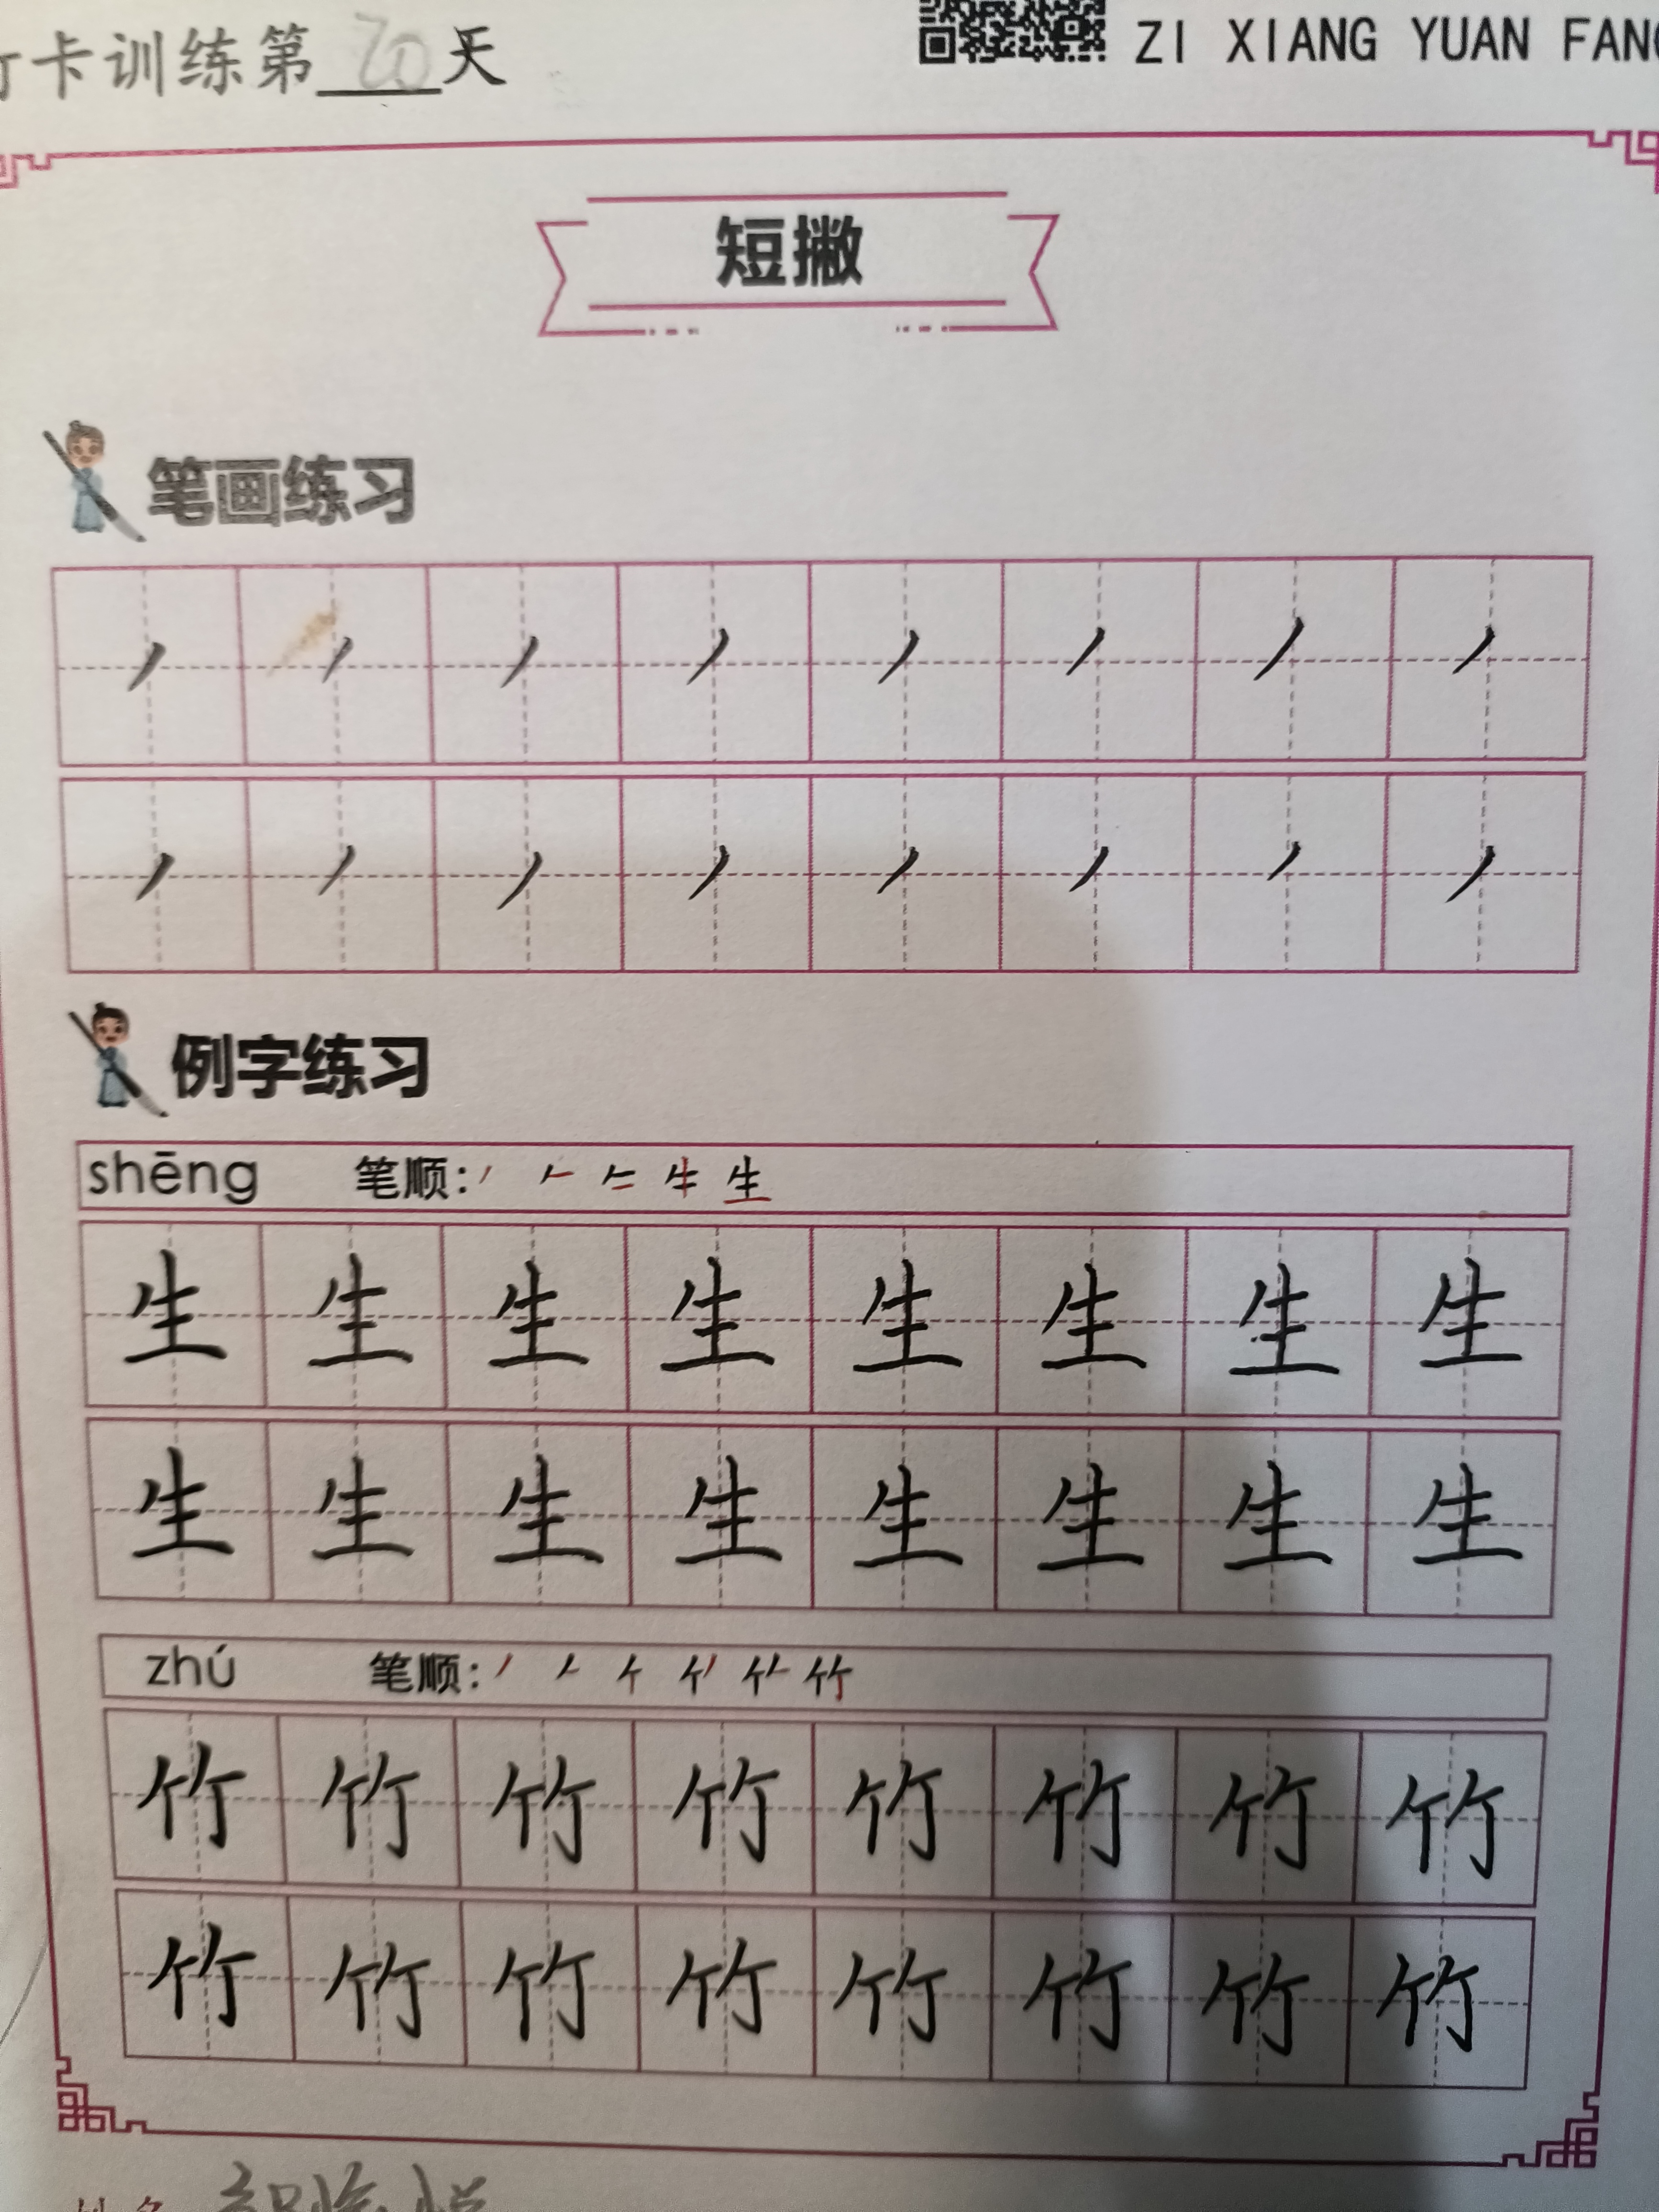 卡训练第20天
ZI XIANG YUAN FANG
短撇
笔画练习
丿丿丿丿丿丿丿丿
丿丿丿丿丿丿丿丿
例字练习
shēng 笔顺：
生生生生生生生生
生生生生生生生生
zhú 笔顺：
竹竹竹竹竹竹竹竹
竹竹竹竹竹竹竹竹